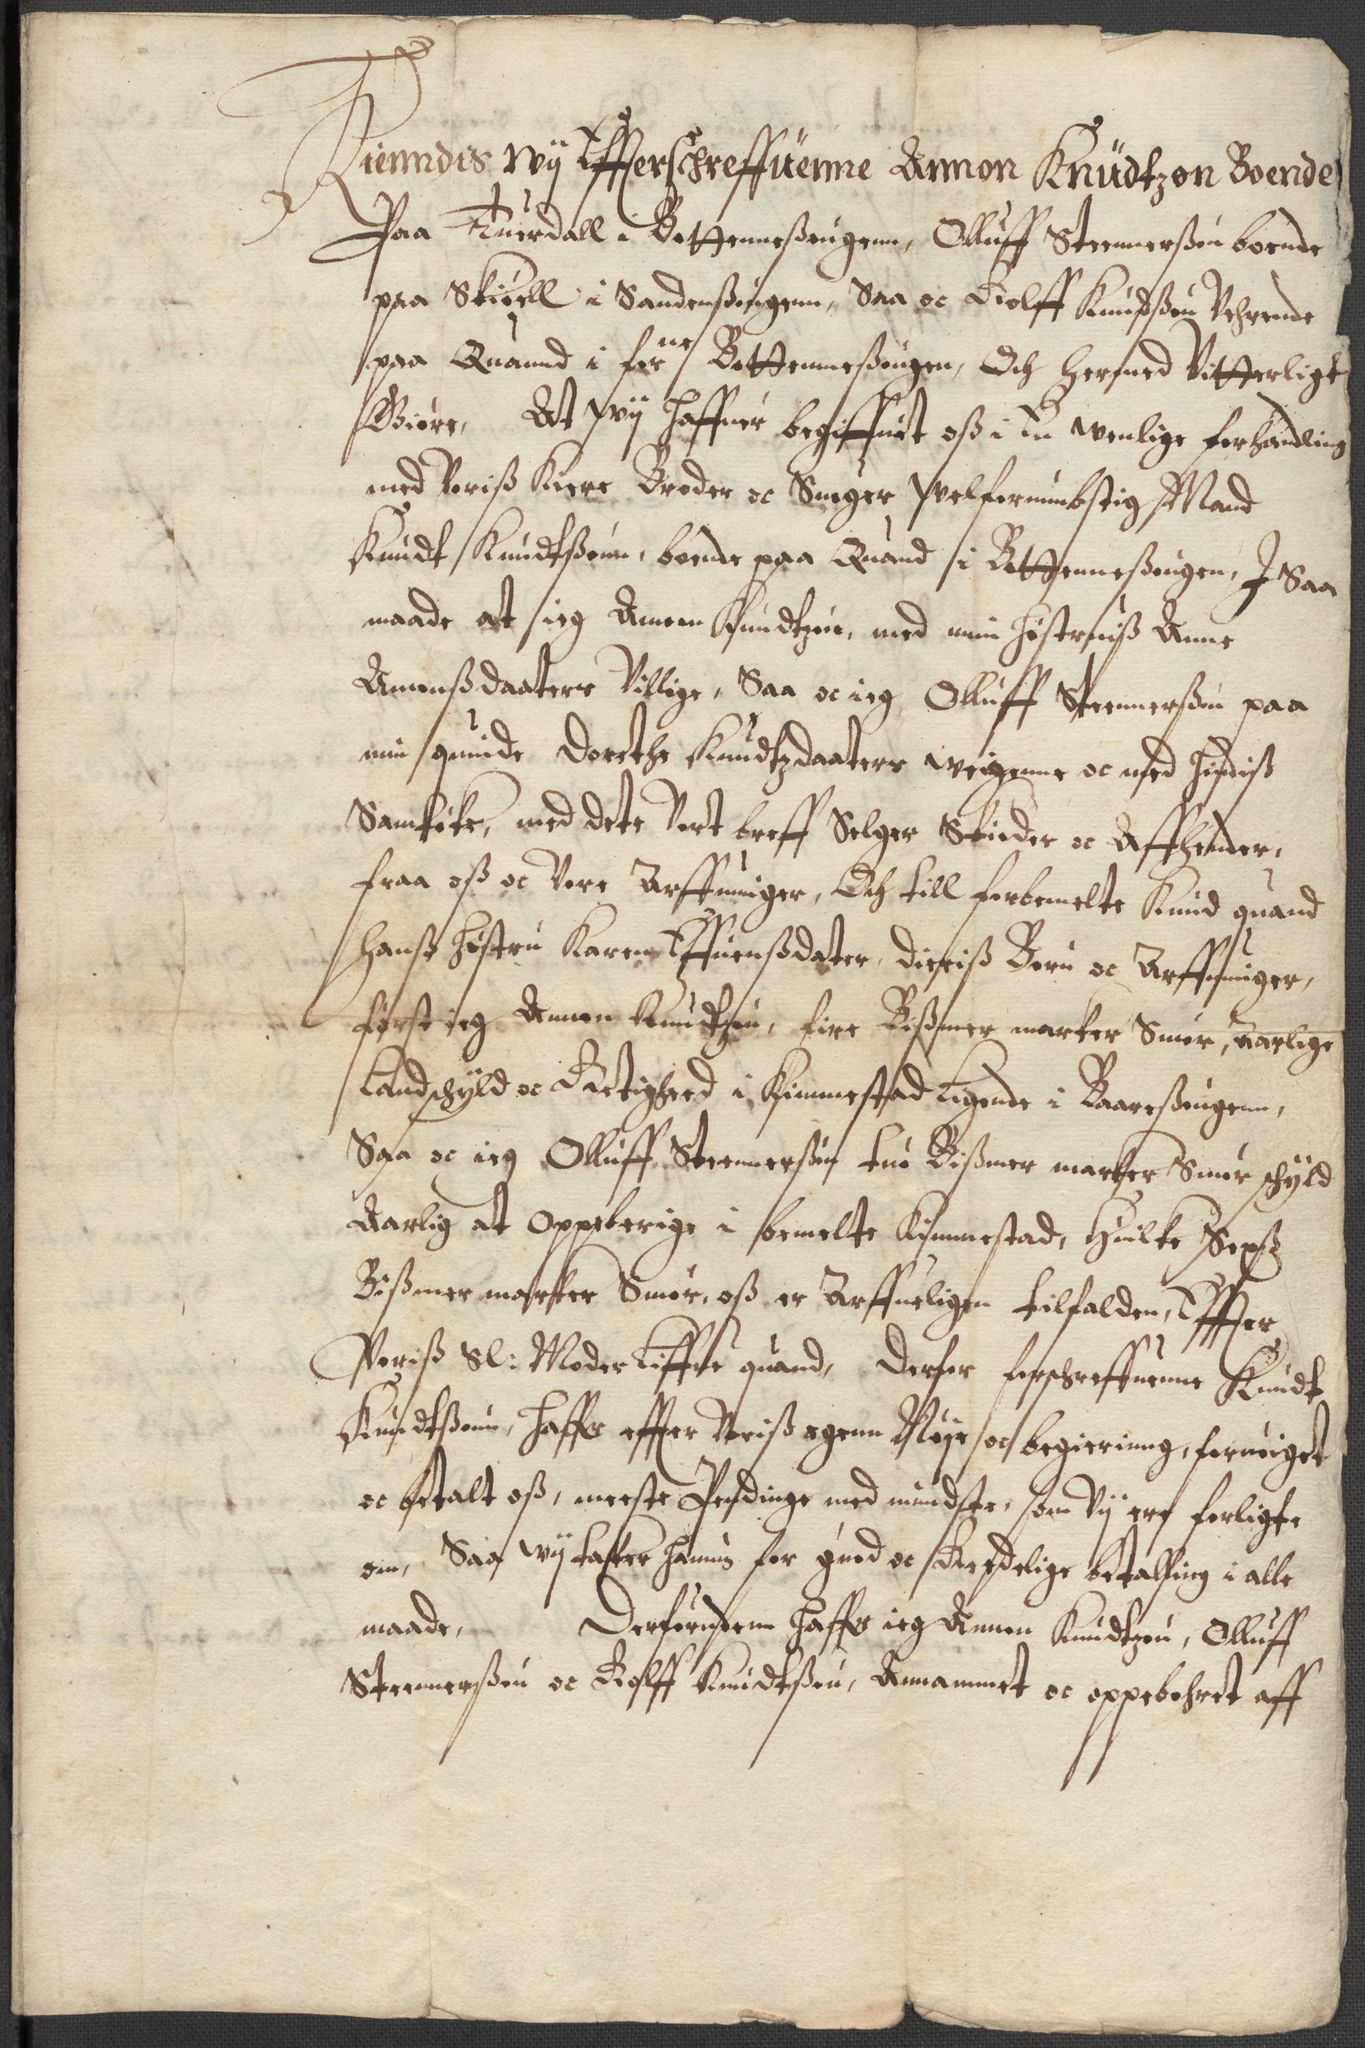 Kienndis wij Effterschreffüenne Amon Knüdtzon Boende
Paa Tuerdall i Bottenneßougenn, Olluff Steennerßøn boende
paa Skiøell i Sandenßougenn, Saa oc Rolff Knudßøn Vehrende
paa Quannd i forne Bottenneßougen, Och hermed Vitterligt
Giøre, At wij haffuer begiffuit oß i En wenlige forhandling
med Voriß Kiere Broder oc Suoger welfornumbstig Mand
Knudt Knudtßønn, boende paa Quand i Bottenneßougen, J Saa
maade at ieg Amon Knudtzøn, med min høstruiß Anne
Amonßdaaters Villige, Saa oc ieg Olluff Steennerßøn paa
min quinde Dorethe Knudtzdaaters weigenne oc med hindiß
Samtøke, med dete Vort breff Selger Skiøder oc Affhender,
fraa oß oc Vore Arffuinger, Och till forbemelte Knud quand
hanß høstru Karen Effuenßdater, dieriß Børn oc Arffuinger,
først ieg Amon Knudtzøn, fire Bißmer marker Smør, Aarlige
Landschyld oc Retighed i Kimmestad Ligende i Baareßougenn,
Saa oc ieg Olluff Steennerßøn tuo Bißmer marker Smør schyld
Aarlig at oppeberige i bemelte Kimmestad, Huilke Sexß
Bißmer marker Smør, oß er Arffueligen tilfalden, Effter
Voriß Sl: Moder Liffue quand, Derfor forschreffuenne Knudt
Knudtßønn, haffr effter Voriß egenn Nøje oc begierinng, fornøiget
oc betalt oß, meeste Pendinge med mindste, som Vij ere forligte
om, Saa wij tacker hannom for guod oc Redelige betalling i alle
maade, Derforudenn haffr ieg Amon Knudtzøn, Olluff
Steennerßøn oc Rolff Knudtßøn, Annammet oc oppebohret aff